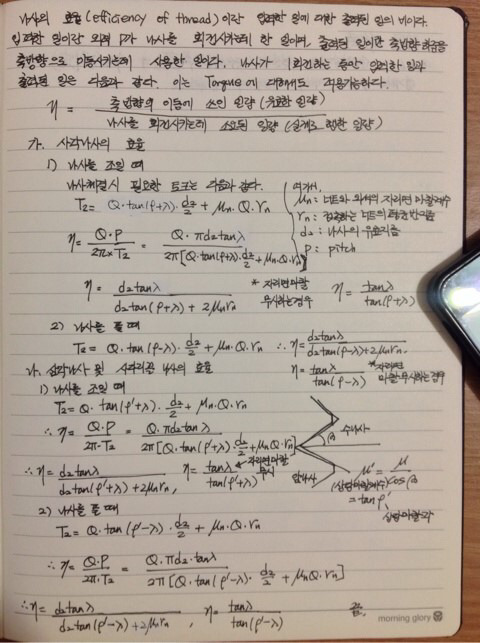 나사의 효율(efficiency of thread)이란 입력한 일에 대한 출력된 일의 비이다.
입력한 일이란 외력 P가 나사를 회전시키는데 한 일이며, 출력된 일이란 축방향 하중을
축방향으로 이동시키는데 사용한 일이다. 나사가 1회전하는 동안 입력한 일과
출력된 일은 다음과 같다. 이는 Torque에 대해서도 적용가능하다.
η = 축방향의 이동에 쓰인 일량 (유효한 일량) / 나사를 회전시키는데 소요된 일량 (실제로 행한 일량)
가. 사각나사의 효율
1) 나사를 조일 때
나사체결시 필요한 토크는 다음과 같다.
T₂ = Q·tan(ρ+λ)·d₂/2 + μn·Q·rn
여기서,
μn : 너트와 와셔의 자리면 마찰계수
rn : 접촉하는 너트의 평균반지름
d₂ : 나사의 유효지름
p : pitch
η = Q·P / 2π×T₂ = Q·πd₂tanλ / 2π[Q·tan(ρ+λ)·d₂/2 + μn·Q·rn]
η = d₂tanλ / d₂tan(ρ+λ) + 2μnrn
* 자리면마찰 무시하는경우 η = tanλ / tan(ρ+λ)
2) 나사를 풀 때
T₂ = Q·tan(ρ-λ)·d₂/2 + μn·Q·rn ∴ η = d₂tanλ / d₂tan(ρ-λ)+2μnrn,
η = tanλ / tan(ρ-λ) *자리면 마찰무시하는 경우
나. 삼각나사 및 사다리꼴 나사의 효율
1) 나사를 조일 때
T₂ = Q·tan(ρ'+λ)·d₂/2 + μn·Q·rn
∴ η = Q·P / 2π·T₂ = Q·πd₂tanλ / 2π[Q·tan(ρ'+λ)·d₂/2 + μnQ·rn]
β 수나사
암나사
∴ η = d₂tanλ / d₂tan(ρ'+λ)+2μnrn, η = tanλ / tan(ρ'+λ) 자리면마찰 무시
μ' = μ / cosβ
(상당마찰계수)
= tanρ'
상당마찰각
2) 나사를 풀 때
T₂ = Q·tan(ρ'-λ)·d₂/2 + μn·Q·rn
∴ η = Q·P / 2π·T₂ = Q·πd₂·tanλ / 2π[Q·tan(ρ'-λ)·d₂/2 + μnQ·rn]
∴ η = d₂tanλ / d₂tan(ρ'-λ)+2μnrn, η = tanλ / tan(ρ'-λ) 끝.
morning glory